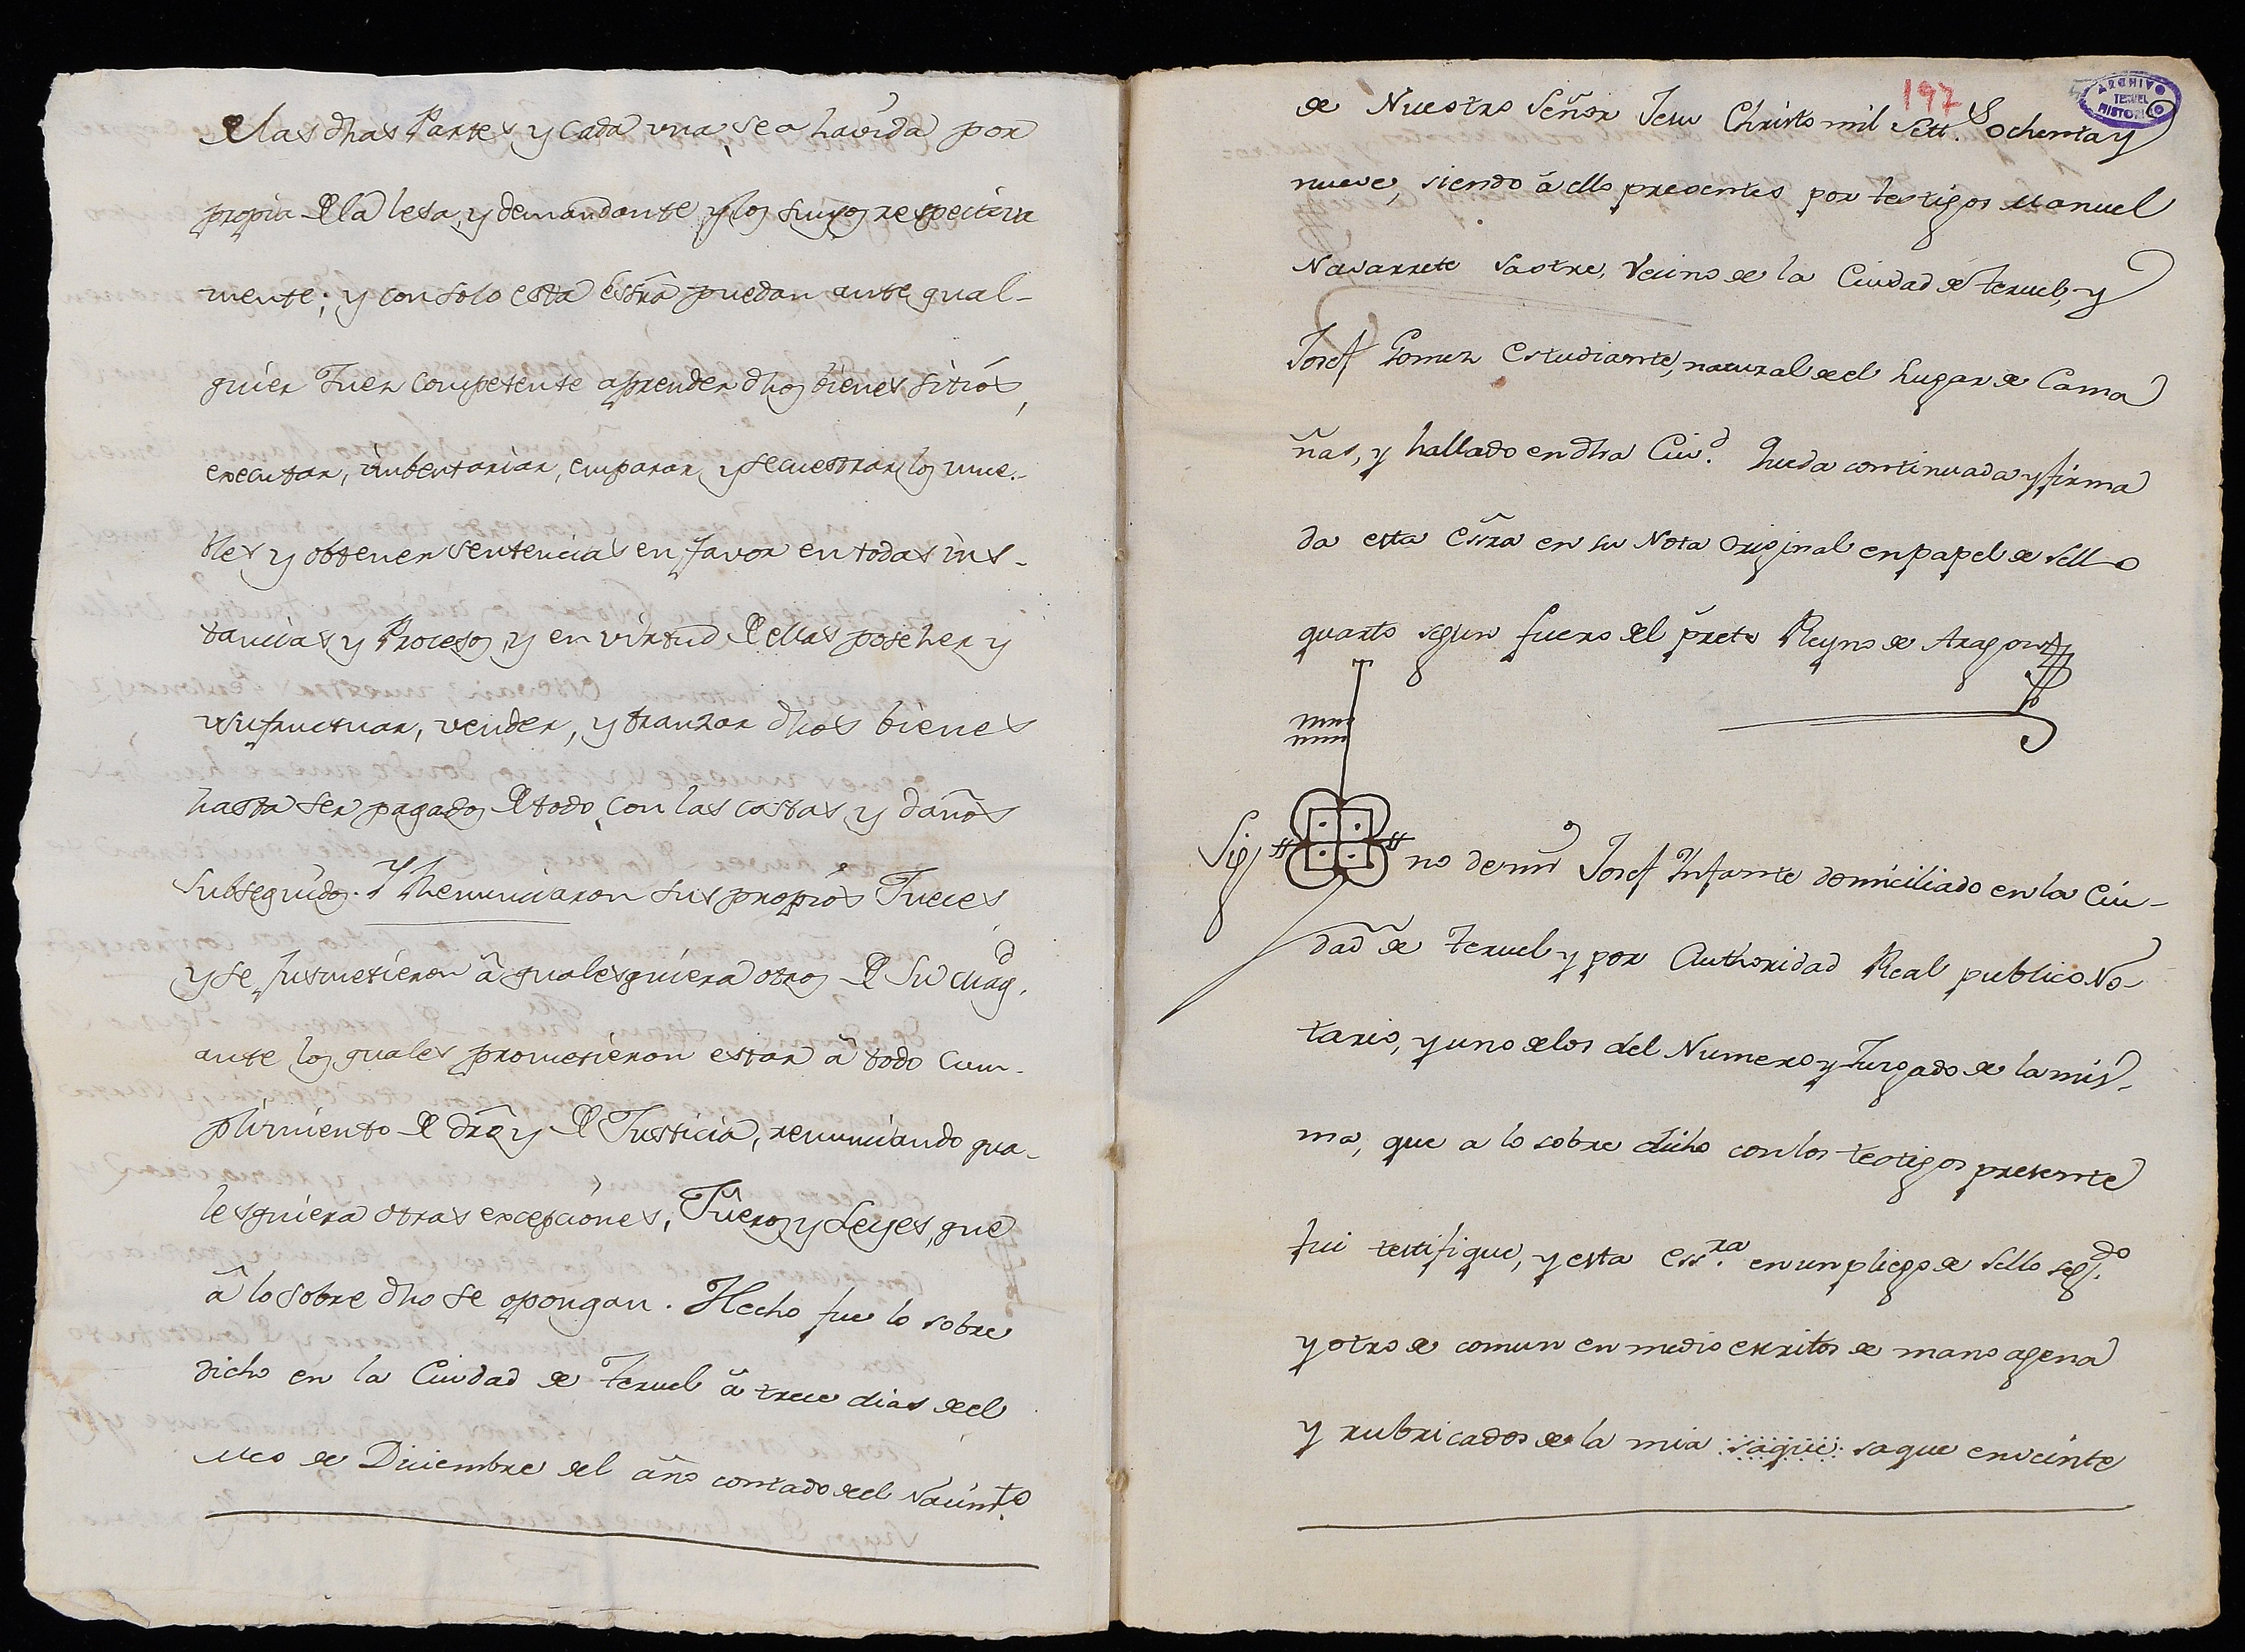 de las dhas Partes y cada una, sea havida por
propia de la lesa, y demandante, y los suyos respectiva
mente; y con solo esta essra puedan, ante qual-
quier Juez competente aprender dhos bienes sitios,
executar, imbentariar, emparar, y secuestrar los mue-
bles y obtener sentencias en favor en todas ins-
tancias y Procesos, y en virtud de ellas poseher y
usufructuar, vender, y tranzar dhos bienes
hasta ser pagados de todo, con las costas y daños
subseguidos. Y Renunciaron sus propios Jueces
y se jusmetieron â qualesquiera otros de Su Magd.
ante los quales prometieron estar â todo cum-
plimiento de dro y de Justicia, renunciando qua-
lesquiera otras excepciones, Fueros y Leyes, que
â lo sobre dho se opongan. Hecho fue lo sobre
dicho en la Ciudad de Teruel â trece dias del
Mes de Diciembre del año contado del Nacimto.
197
ARCHIVO
TERUEL
HISTORICO
de Nuestro Señor Jesu Christo mil Sett.s ochenta y
nueve, siendo â ello presentes por testigos Manuel
Navarrete Sastre, Vecino de la Ciudad de Teruel, y
Josef Gomez Estudiante, natural del Lugar de Cama
ñas, y hallado en dha Ciud. Queda continuada y firma
da esta Essra en su Nota Original en papel de Sello
quarto segun fuero del preste Reyno de Aragon
Sig no de mi Josef Infante domiciliado en la Ciu-
dad de Teruel y por Authoridad Real publico No-
tario, y uno de los del Numero y Juzgado de la mis-
ma, que a lo sobre dicho con los testigos presente
fui testifique, y esta Ess.ra en un pliego de Sello seg.do
y otro de comun en medio escritos de mano agena
y rubricados de la mia saque saque en veinte